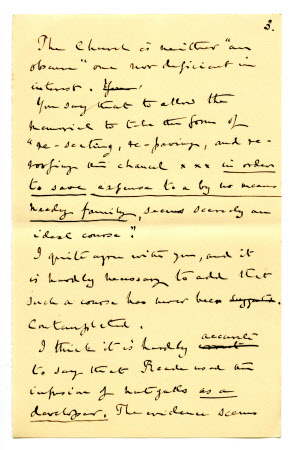 3.
The Church is neither "an
obscure" one nor deficient in
interest.
You say that to allow the
memorial to take the form of
"re-seating, re-paving, and re-
roofing the chancel x x x in order
to save expense to a by no means
needy family, seems scarcely an
ideal course".
I quite agree with you, and it
is hardly necessary to add that
such a course has never been suggested.
Contemplated.
I think it is hardly accurate
to say that Reade used an
infusion of nutgalls as a
developer. The evidence seems